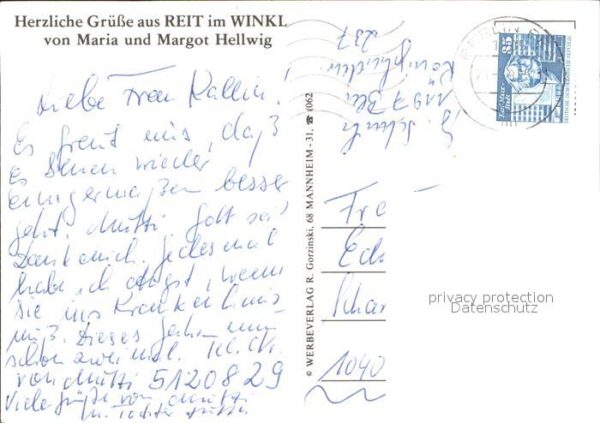 Herzliche Grüße aus REIT im WINKL
von Maria und Margot Hellwig
Liebe Frau Kallin!
Es freut uns, daß
es Ihnen wieder
einigermaßen besser
geht. Mutti. Gott sei
Dank auch. jedesmal
habe ich Angst, wenn
Sie ins Krankenhaus
muß. Dieses Jahr nun
schon zweimal. Tel.
von Mutti 5120829
Viele Grüße von Mutti
u. Tochter
© WERBEVERLAG R. Gorzinski, 68 MANNHEIM - 31, ☎ (062
1197
237
BERLIN
35
DDR
Fre
Eck
Schar
1040
privacy protection
Datenschutz